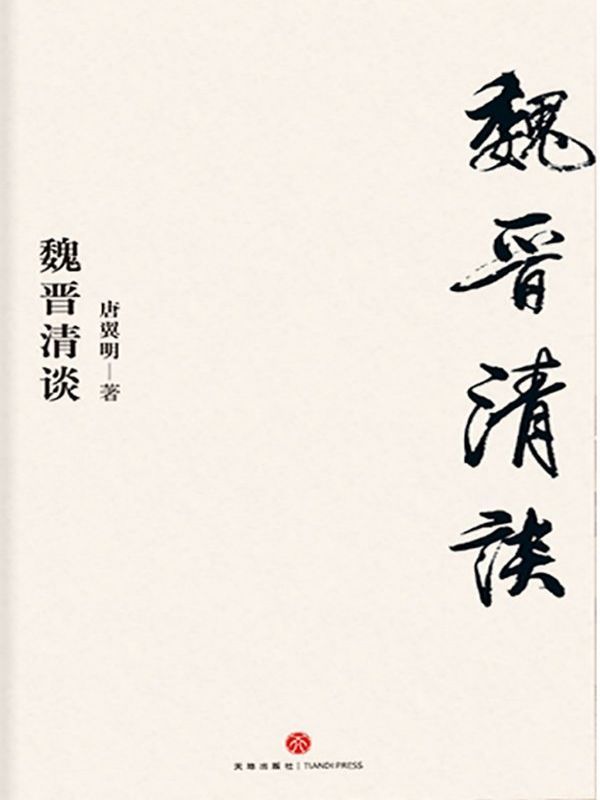 魏晋清談
魏晋清谈
唐翼明—著
天地出版社 | TIANDI PRESS